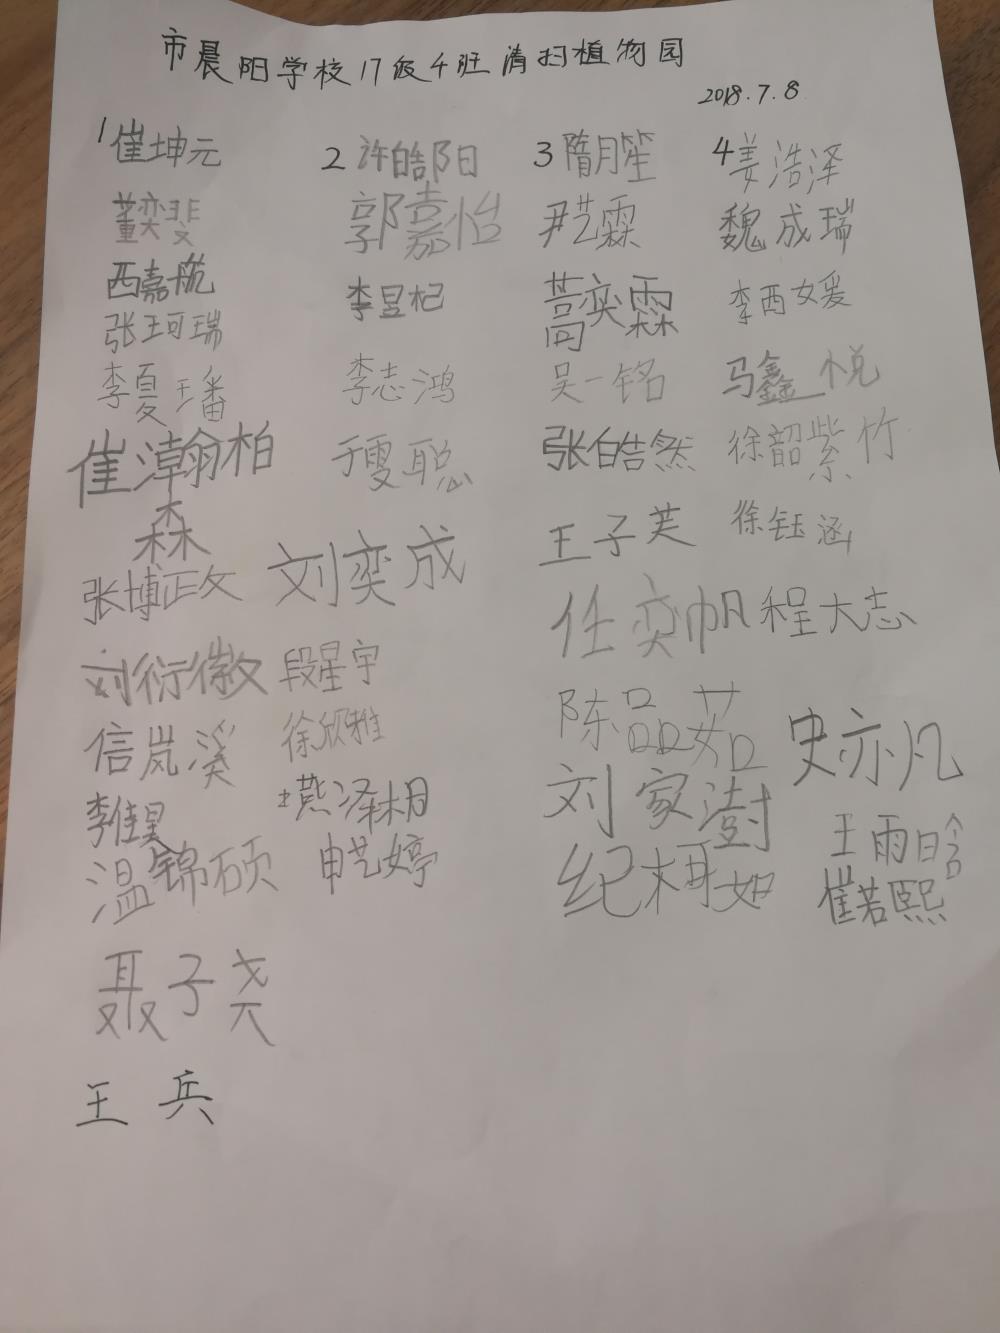 市晨阳学校17级4班清扫植物园
2018.7.8
1 崔坤元
董奕斐
西嘉航
张珂瑞
李夏璠
崔瀚柏
森
张博政
刘衍徽
信岚溪
李佳昊
温锦硕
聂子尧
王兵
2 许皓阳
郭嘉怡
李昱杞
李志鸿
于雯聪
刘奕成
段星宇
徐欣雅
燕泽楠
申艺婷
3 隋月笙
尹艺霖
蒿奕霖
吴一铭
张皓然
王子芙
任奕帆
陈品茹
刘家澍
纪柯如
4 姜浩泽
魏成瑞
李西媛
马鑫悦
徐韶紫竹
徐钰涵
程大志
史亦凡
王雨晗
崔若熙